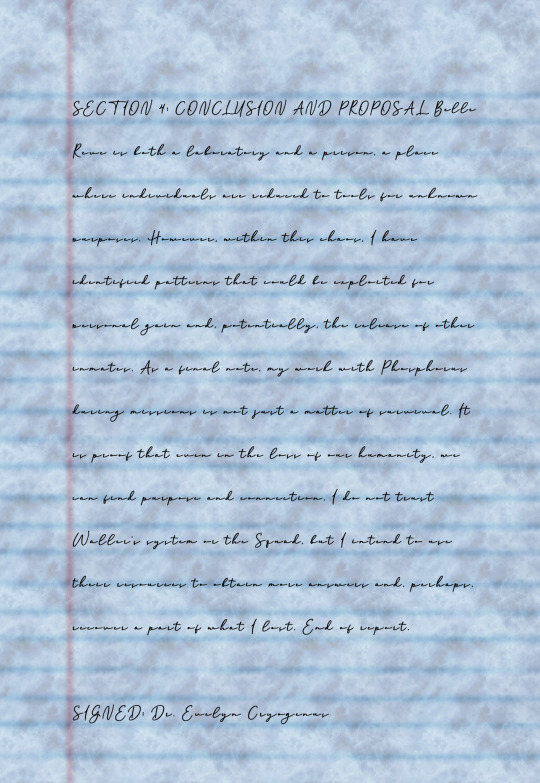 SECTION 4: CONCLUSION AND PROPOSAL Belle
Reve is both a laboratory and a prison, a place
where individuals are reduced to tools for unknown
purposes. However, within this chaos, I have
identified patterns that could be exploited for
personal gain and, potentially, the release of other
inmates. As a final note, my work with Phosphorus
during missions is not just a matter of survival. It
is proof that even in the loss of our humanity, we
can find purpose and connection. I do not trust
Waller's system or the Squad, but I intend to use
their resources to obtain more answers and, perhaps,
recover a part of what I lost. End of report.
SIGNED: Dr. Evelyn Cryogenus